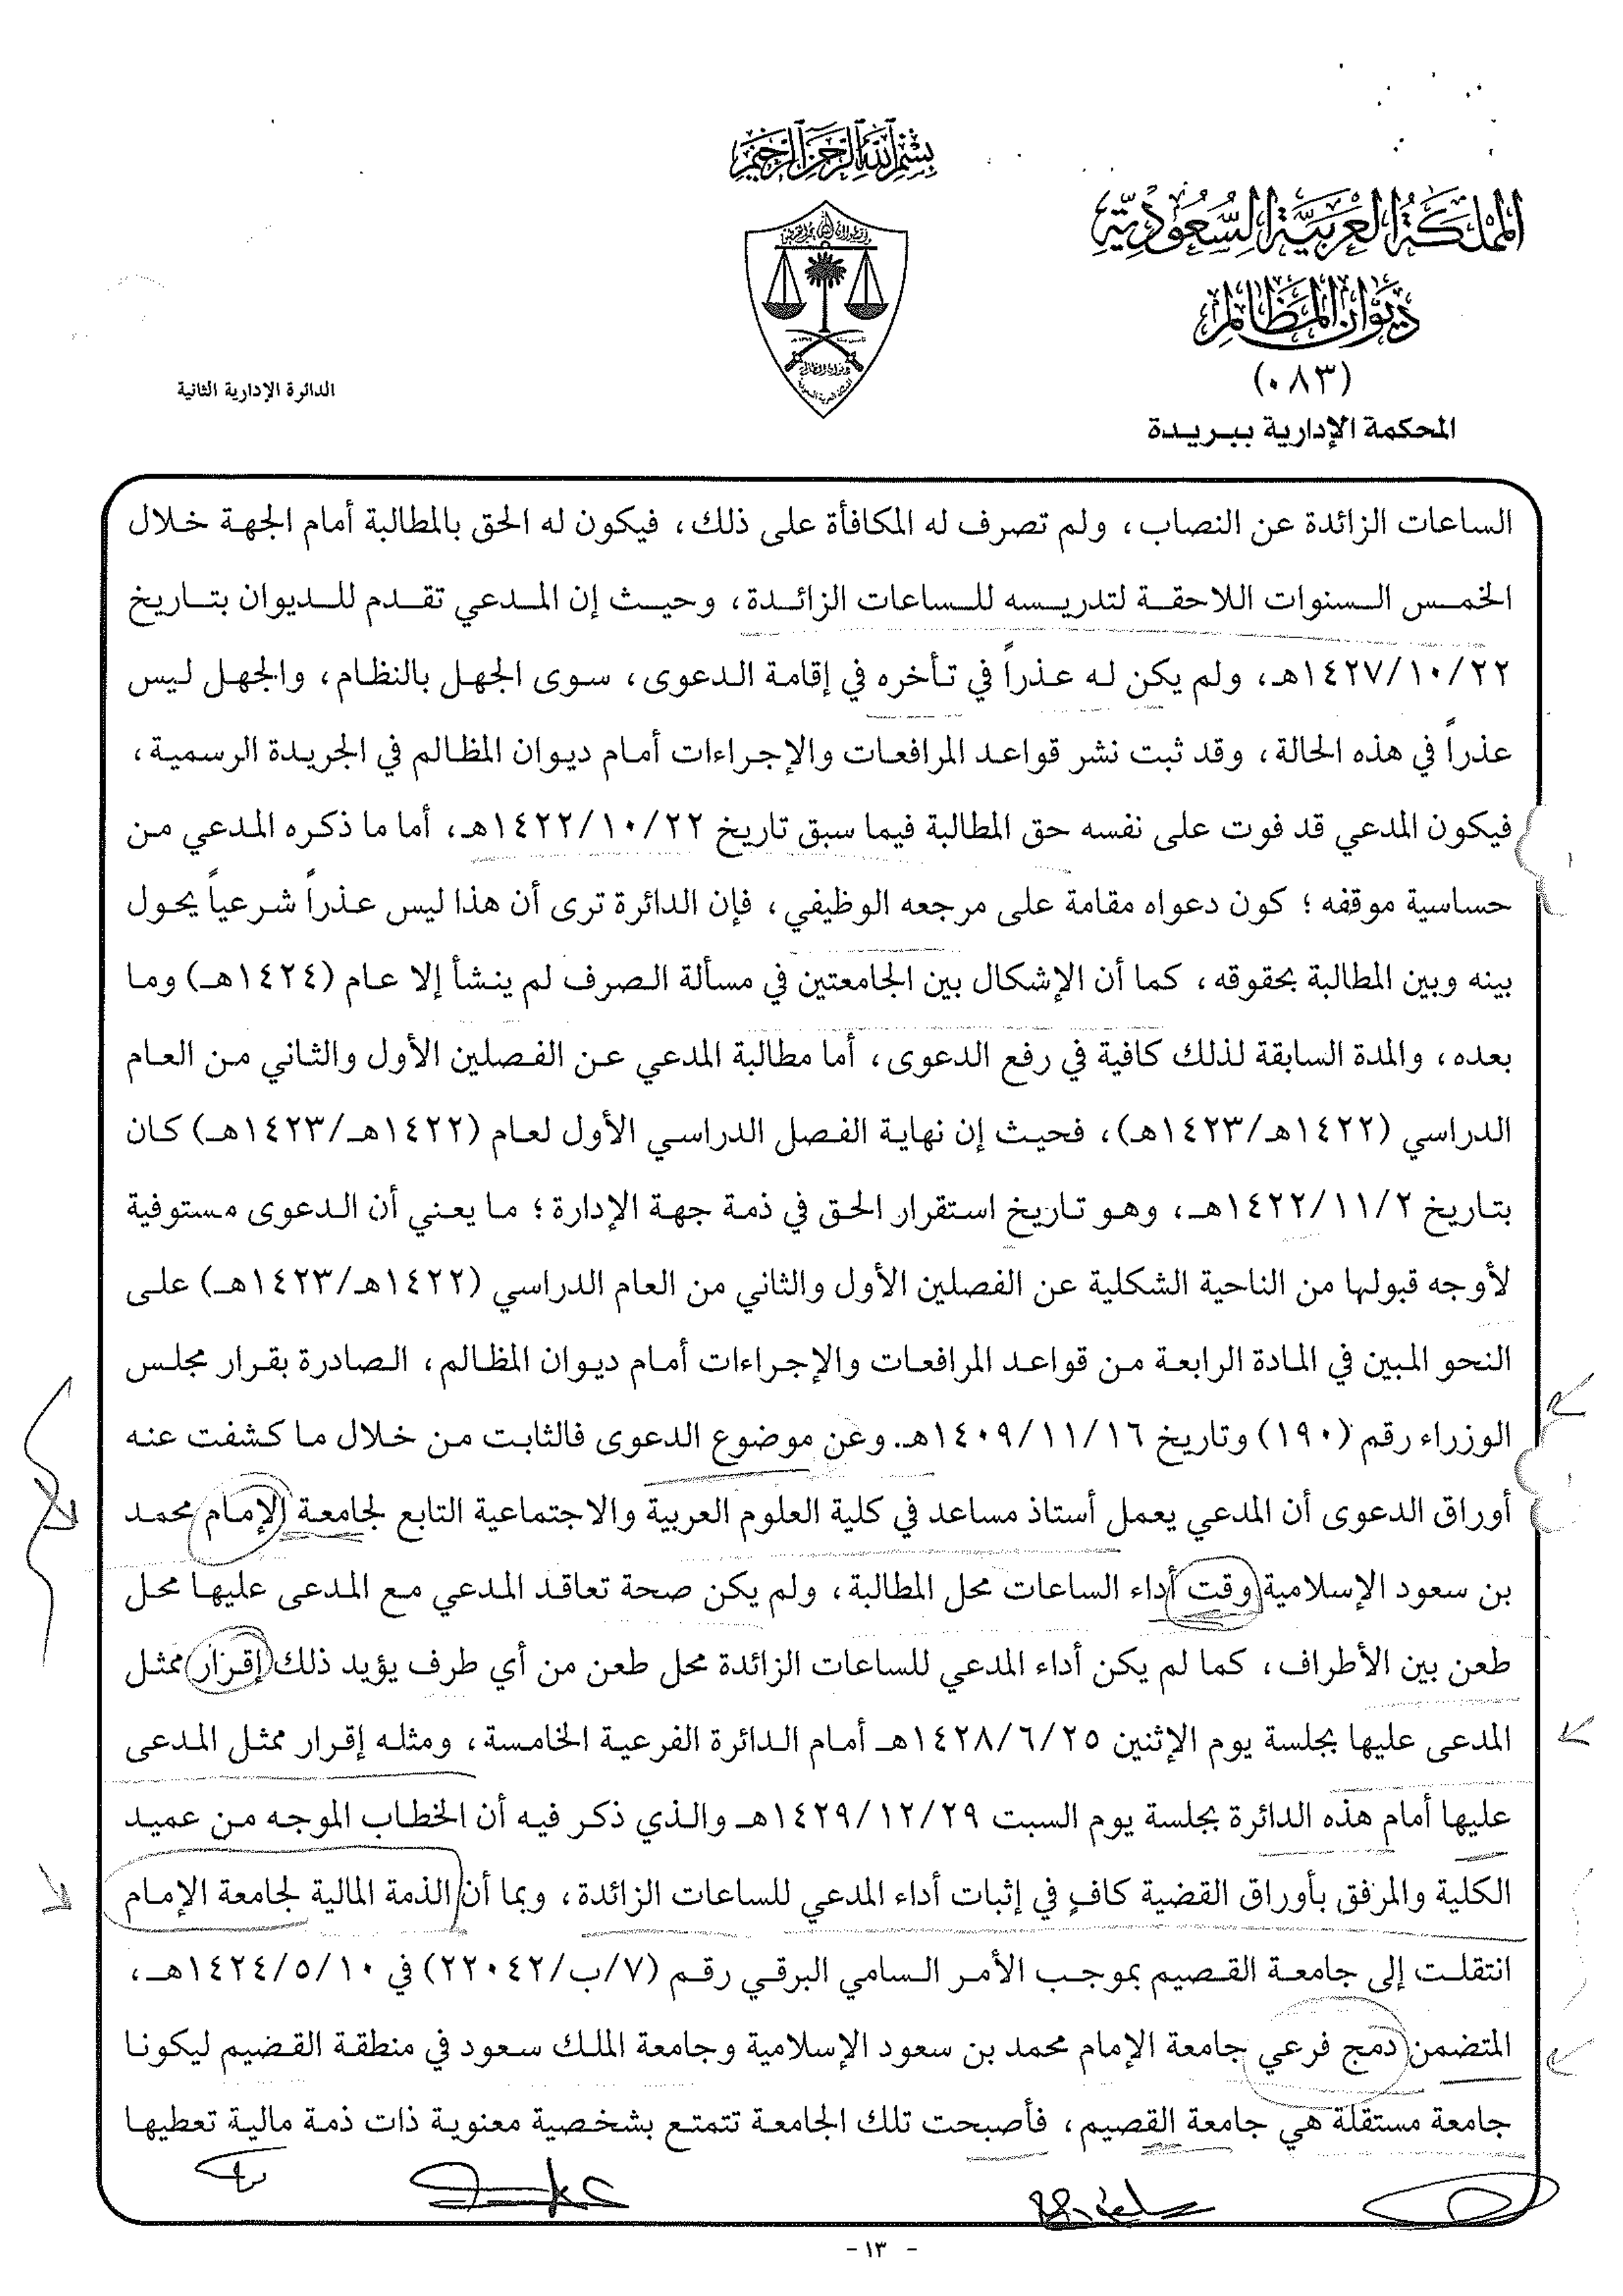 بسم الله الرحمن الرحيم
المملكة العربية السعودية
ديوان المظالم
(٠٨٣)
المحكمة الإدارية ببريدة
الدائرة الإدارية الثانية
الساعات الزائدة عن النصاب، ولم تصرف له المكافأة على ذلك، فيكون له الحق بالمطالبة أمام الجهة خلال
الخمس السنوات اللاحقة لتدريسه للساعات الزائدة، وحيث إن المدعي تقدم للديوان بتاريخ
١٤٢٧/١٠/٢٢هـ، ولم يكن له عذراً في تأخره في إقامة الدعوى، سوى الجهل بالنظام، والجهل ليس
عذراً في هذه الحالة، وقد ثبت نشر قواعد المرافعات والإجراءات أمام ديوان المظالم في الجريدة الرسمية،
فيكون المدعي قد فوت على نفسه حق المطالبة فيما سبق تاريخ ١٤٢٢/١٠/٢٢هـ، أما ما ذكره المدعي من
حساسية موقفه؛ كون دعواه مقامة على مرجعه الوظيفي، فإن الدائرة ترى أن هذا ليس عذراً شرعياً يحول
بينه وبين المطالبة بحقوقه، كما أن الإشكال بين الجامعتين في مسألة الصرف لم ينشأ إلا عام (١٤٢٤هـ) وما
بعده، والمدة السابقة لذلك كافية في رفع الدعوى، أما مطالبة المدعي عن الفصلين الأول والثاني من العام
الدراسي (١٤٢٢هـ/١٤٢٣هـ)، فحيث إن نهاية الفصل الدراسي الأول لعام (١٤٢٢هـ/١٤٢٣هـ) كان
بتاريخ ١٤٢٢/١١/٢هـ، وهو تاريخ استقرار الحق في ذمة جهة الإدارة؛ ما يعني أن الدعوى مستوفية
لأوجه قبولها من الناحية الشكلية عن الفصلين الأول والثاني من العام الدراسي (١٤٢٢هـ/١٤٢٣هـ) على
النحو المبين في المادة الرابعة من قواعد المرافعات والإجراءات أمام ديوان المظالم، الصادرة بقرار مجلس
الوزراء رقم (١٩٠) وتاريخ ١٤٠٩/١١/١٦هـ. وعن موضوع الدعوى فالثابت من خلال ما كشفت عنه
أوراق الدعوى أن المدعي يعمل أستاذ مساعد في كلية العلوم العربية والاجتماعية التابع لجامعة الإمام محمد
بن سعود الإسلامية وقت أداء الساعات محل المطالبة، ولم يكن صحة تعاقد المدعي مع المدعى عليها محل
طعن بين الأطراف، كما لم يكن أداء المدعي للساعات الزائدة محل طعن من أي طرف يؤيد ذلك إقرار ممثل
المدعى عليها بجلسة يوم الإثنين ١٤٢٨/٦/٢٥هـ أمام الدائرة الفرعية الخامسة، ومثله إقرار ممثل المدعى
عليها أمام هذه الدائرة بجلسة يوم السبت ١٤٢٩/١٢/٢٩هـ والذي ذكر فيه أن الخطاب الموجه من عميد
الكلية والمرفق بأوراق القضية كافٍ في إثبات أداء المدعي للساعات الزائدة، وبما أن الذمة المالية لجامعة الإمام
انتقلت إلى جامعة القصيم بموجب الأمر السامي البرقي رقم (٧/ب/٢٢٠٤٢) في ١٤٢٤/٥/١٠هـ،
المتضمن دمج فرعي جامعة الإمام محمد بن سعود الإسلامية وجامعة الملك سعود في منطقة القضيم ليكونا
جامعة مستقلة هي جامعة القصيم، فأصبحت تلك الجامعة تتمتع بشخصية معنوية ذات ذمة مالية تعطيها
- ١٣ -